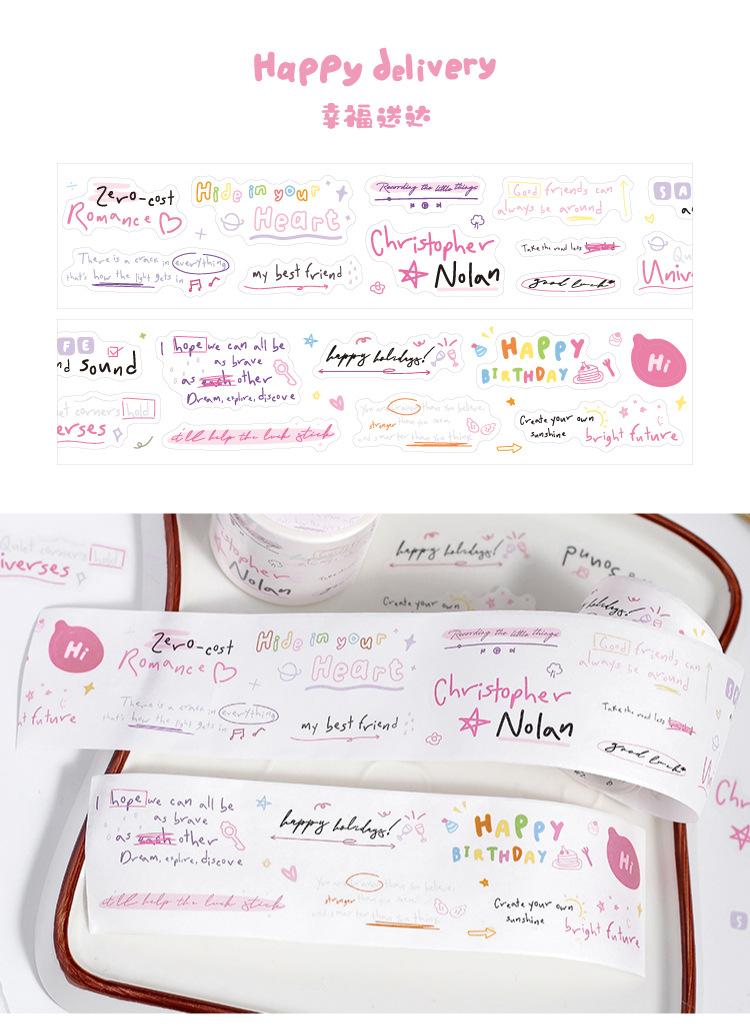 Happy delivery
幸福送达
Zero-cost
Romance
Hide in your
Heart
Recording the little things
Good friends can
always be around
S A
a
There is a crack in everything
that's how the light gets in
my best friend
Christopher
Nolan
Take the road less
good luck
Qu
Univ
F E
nd sound
I hope we can all be
as brave
as each other
Dream, explore, discover
happy holidays!
HAPPY
BIRTHDAY
Hi
iet corners hold
erses
it'll help the luck stick
You are braver than you believe,
stronger than you seem
and smarter than you think
Create your own
sunshine
bright future
Quiet corners hold
iverses
stopher
Nolan
happy holidays!
Create your own
Hi
Zero-cost
Romance
Hide in your
Heart
Recording the little things
Good friends can
always be around
t future
There is a crack in everything
that's how the light gets in
my best friend
Christopher
Nolan
Take the road less
good luck
I hope we can all be
as brave
as each other
Dream, explore, discover
happy holidays!
HAPPY
BIRTHDAY
Hi
it'll help the luck stick
You are braver than you believe,
stronger than you seem
and smarter than you think
Create your own
sunshine
bright future
Ch